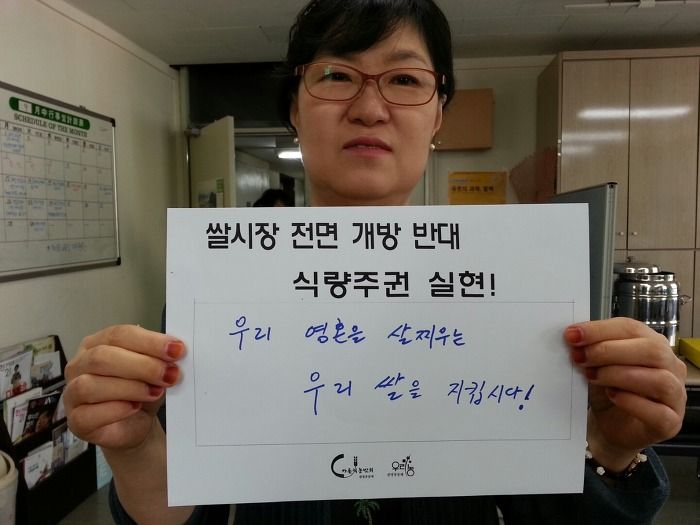 月中行事計劃表
SCHEDULE OF THE MONTH
쌀시장 전면 개방 반대
식량주권 실현!
우리 영혼을 살찌우는
우리 쌀을 지킵시다!
가톨릭농민회
우리농